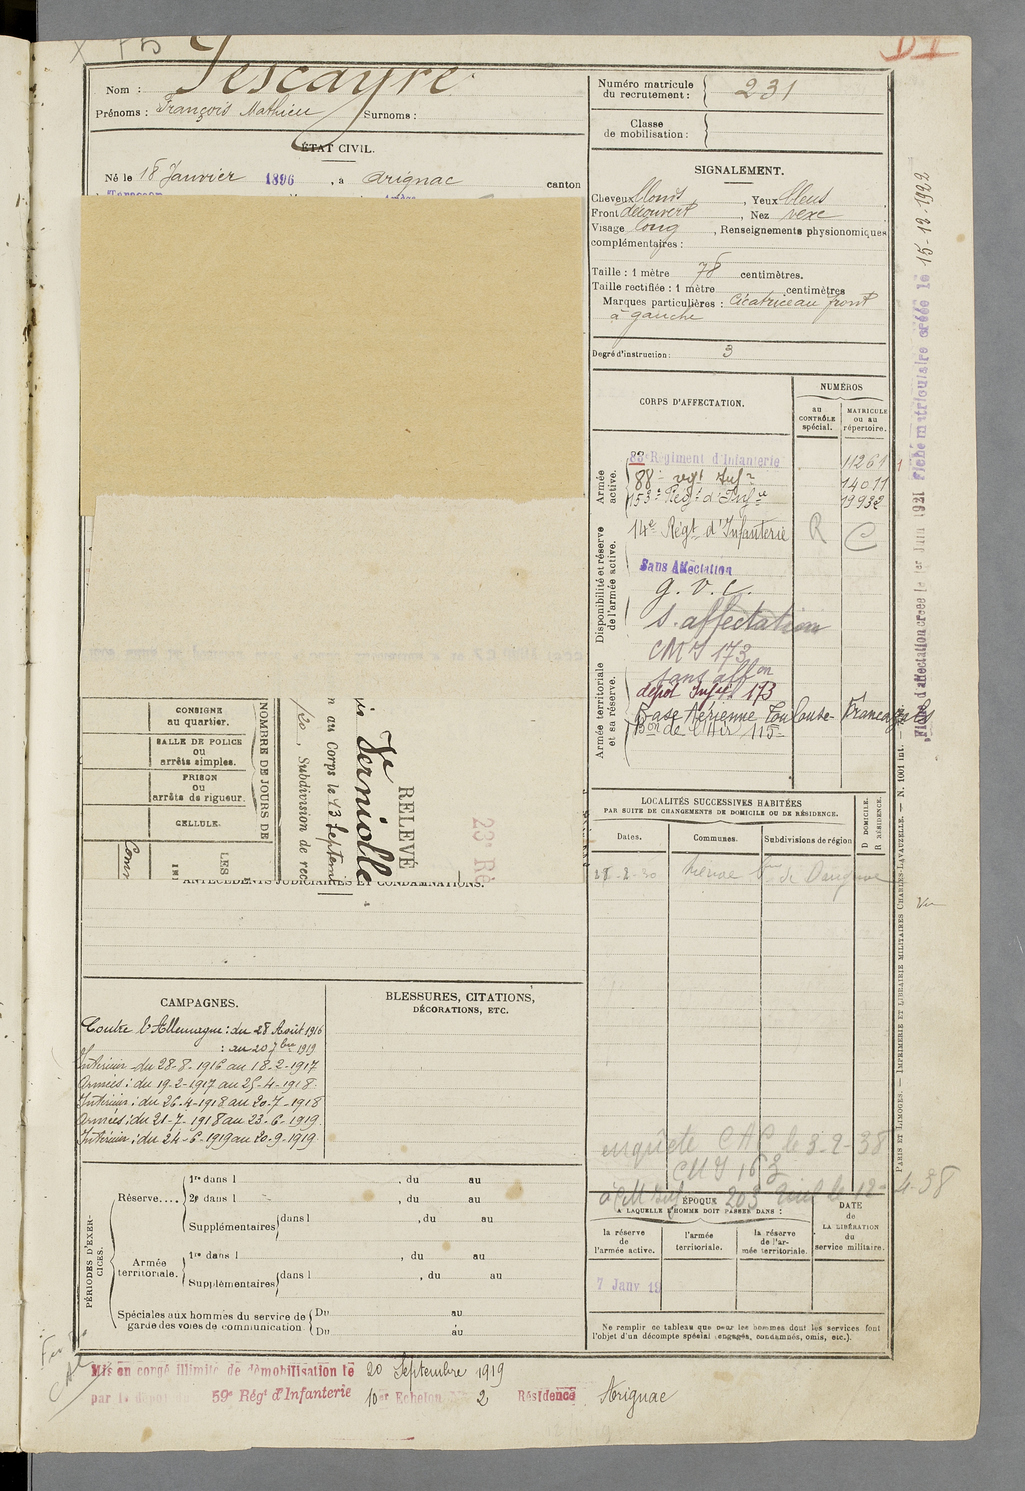 Nom : Lescayre
Prénoms : François Mathieu Surnoms :
ÉTAT CIVIL.
Né le 18 Janvier 1896 , à Arignac canton
Numéro matricule
du recrutement : 231
Classe
de mobilisation :
SIGNALEMENT.
Cheveux blonds , Yeux bleus
Front découvert , Nez vexe
Visage long , Renseignements physionomiques
complémentaires :
Taille : 1 mètre 78 centimètres.
Taille rectifiée : 1 mètre centimètres
Marques particulières : Cicatrice au front
à gauche
Degré d'instruction : 3
CORPS D'AFFECTATION.
NUMÉROS
au
CONTRÔLE
spécial.
MATRICULE
OU AU
répertoire.
Armée
active.
83e Régiment d'Infanterie 11261
88e regt Infre 14011
153e Régt d'Infie 19932
Disponibilité et réserve
de l'armée active.
14e Régt d'Infanterie R C
Sans Affectation
g. v. c.
s. affectation
Armée territoriale
et sa réserve.
CMI 173
sans affon
dépôt Infie 173
Base Aérienne Toulouse-Francazals
Bon de l'Air 115
Fiche d'affectation créée le 1er Juin 1921 Fiche matriculaire créée le 15-12-1922
CONSIGNE
au quartier.
SALLE DE POLICE
ou
arrêts simples.
PRISON
ou
arrêts de rigueur.
CELLULE.
NOMBRE DE JOURS DE
LES
, Subdivision de rec
n au Corps le 13 septem
RELEVÉ
23e Ré
ANTÉCÉDENTS JUDICIAIRES ET CONDAMNATIONS.
LOCALITÉS SUCCESSIVES HABITÉES
PAR SUITE DE CHANGEMENTS DE DOMICILE OU DE RÉSIDENCE.
Dates.
Communes.
Subdivisions de région
D DOMICILE.
R RÉSIDENCE.
CAMPAGNES.
Contre l'Allemagne : du 28 Août 1916
: au 20 7bre 1919
Intérieur du 28-8-1916 au 18-2-1917
Armées : du 19-2-1917 au 25-4-1918
Intérieur : du 26-4-1918 au 20-7-1918
Armées : du 21-7-1918 au 23-6-1919
Intérieur : du 24-6-1919 au 20-9-1919
BLESSURES, CITATIONS,
DÉCORATIONS, ETC.
enquête CAC le 3-2-38
CMI 163
PÉRIODES D'EXER-
CICES.
Réserve....
1re dans l , du au
2e dans l , du au
Supplémentaires dans l , du au
Armée
territoriale.
1re dans l , du au
Supplémentaires dans l , du au
Spéciales aux hommes du service de
garde des voies de communication.
Du au
Du au
ÉPOQUE
A LAQUELLE L'HOMME DOIT PASSER DANS :
la réserve
de
l'armée active.
l'armée
territoriale.
la réserve
de l'ar-
mée territoriale.
DATE
de
LA LIBÉRATION
du
service militaire.
7 Janv 19
Ne remplir ce tableau que pour les hommes dont les services font
l'objet d'un décompte spécial (engagés, condamnés, omis, etc.).
PARIS ET LIMOGES. — IMPRIMERIE ET LIBRAIRIE MILITAIRES CHARLES-LAVAUZELLE. — N. 1001 int.
Mis en congé illimité de démobilisation le 20 Septembre 1919
par le dépôt 59e Régt d'Infanterie 10er Echelon 2 Résidence Arignac